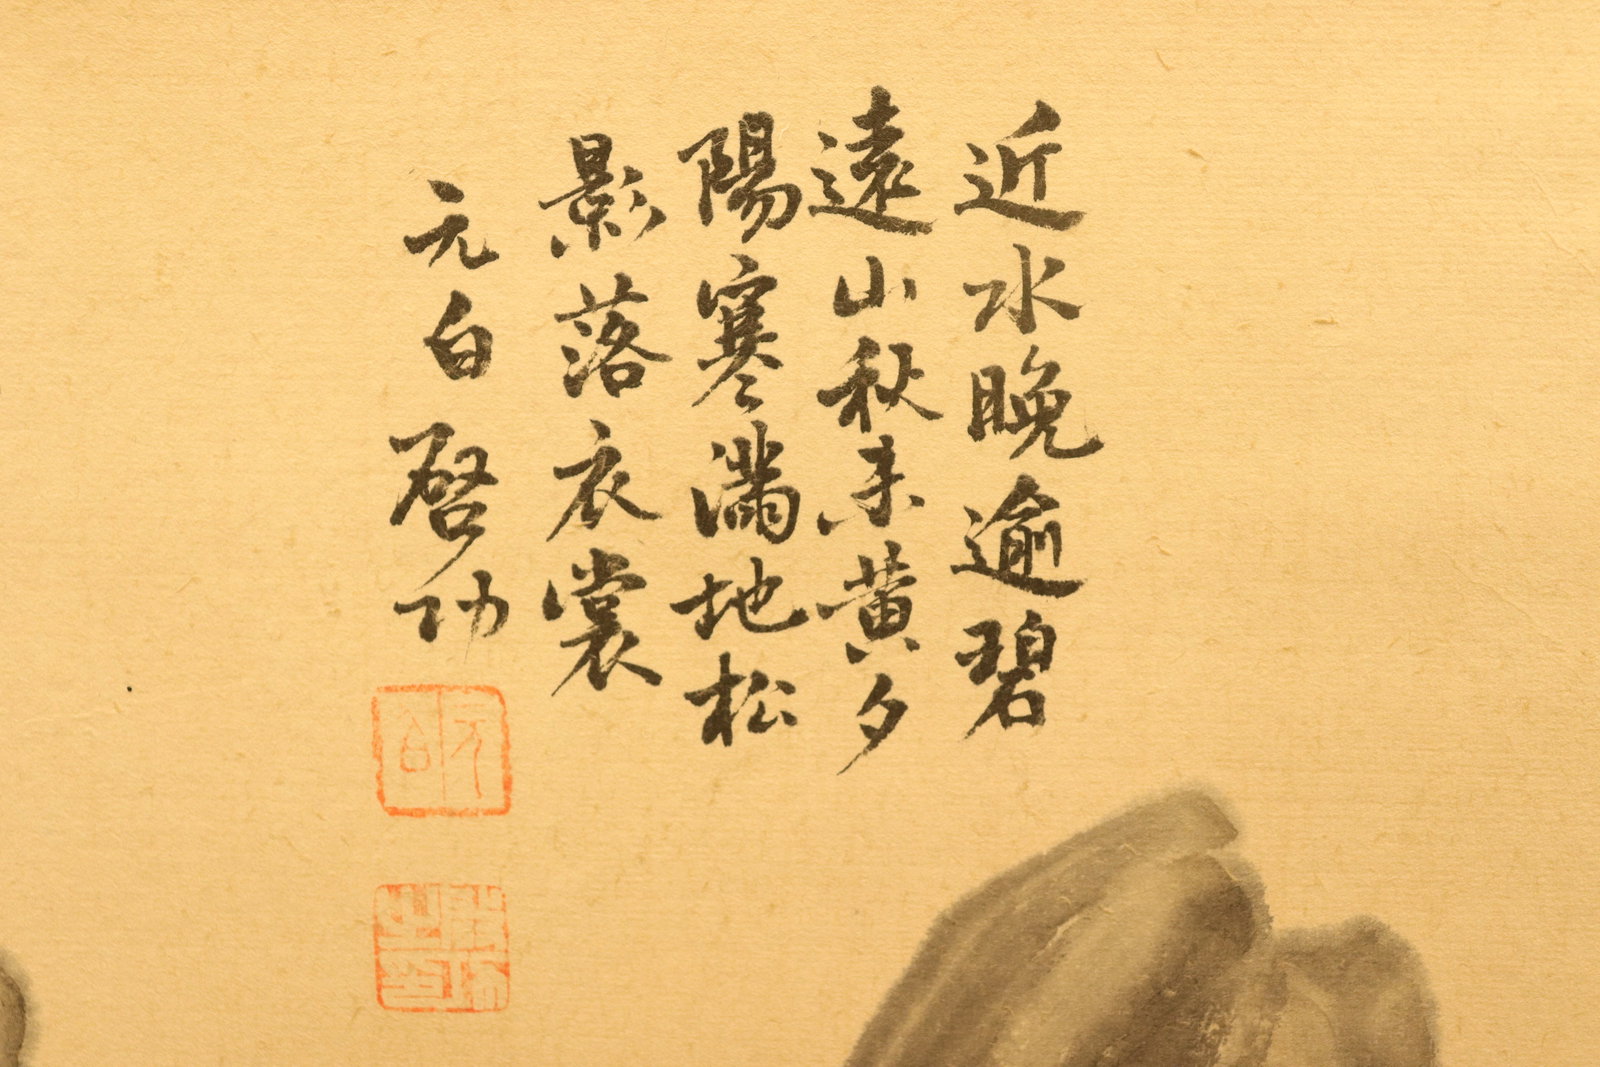 近水晚逾碧
遠山秋未黄夕
陽寒滿地松
影落衣裳
元白啓功
元白